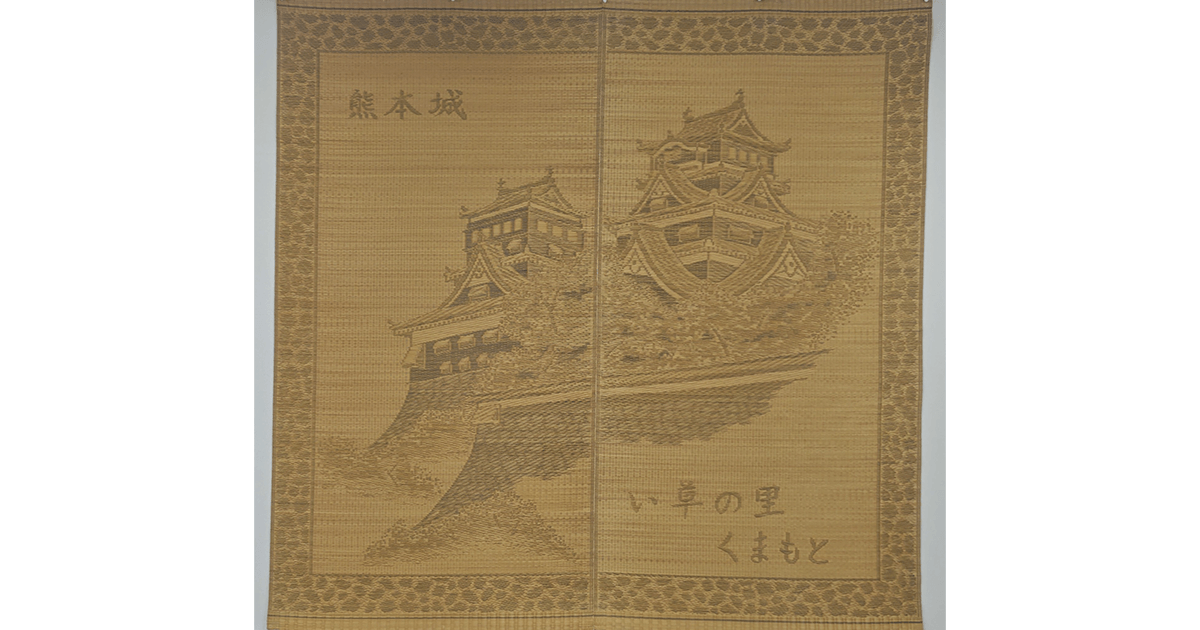 熊本城
い草の里
くまもと